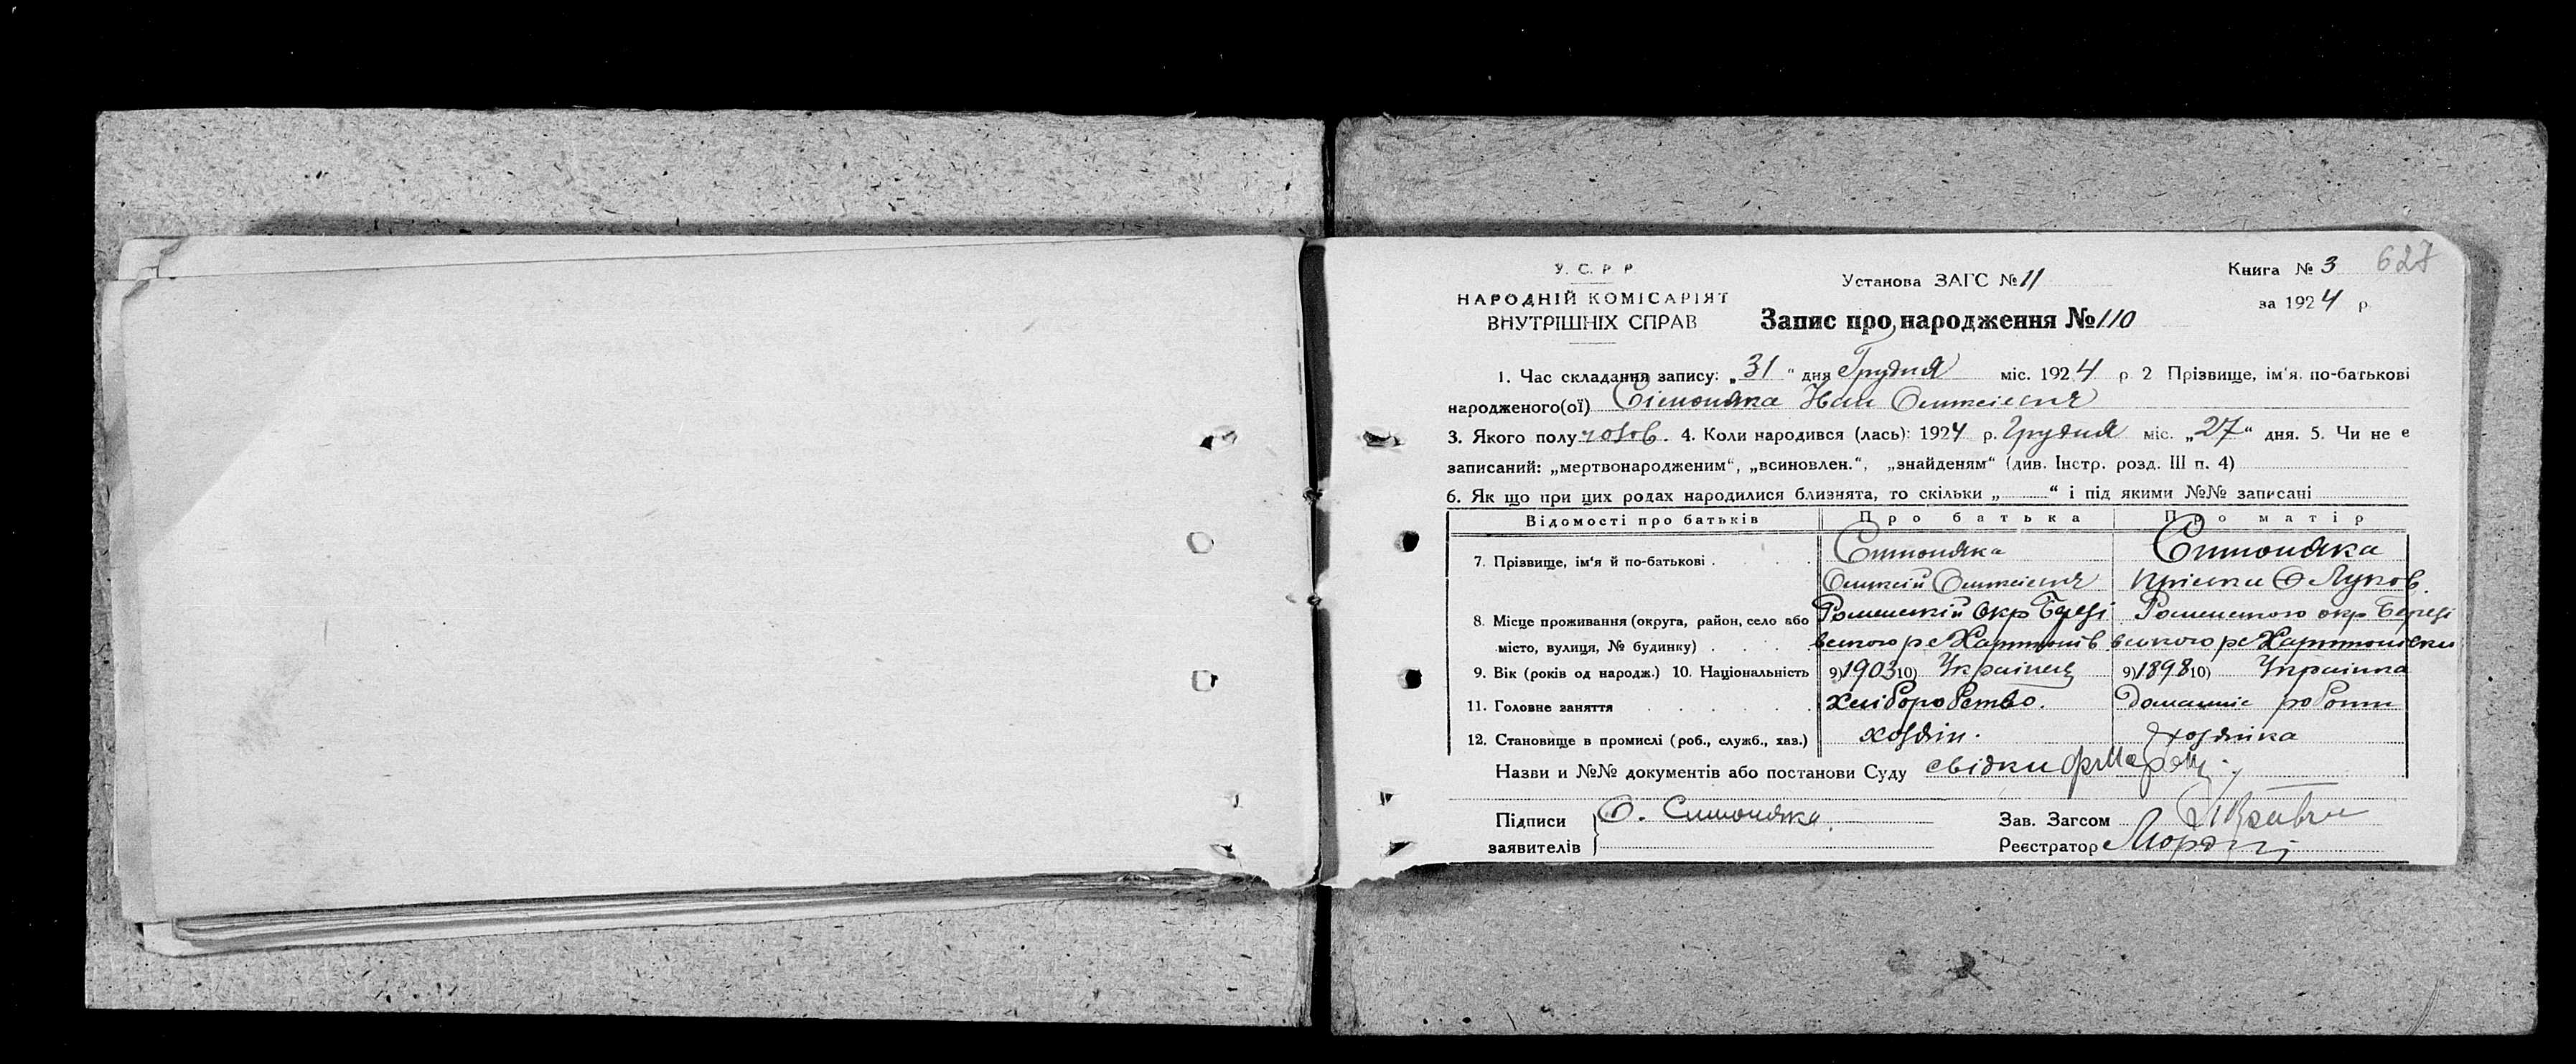 У. С. Р. Р.
НАРОДНІЙ КОМІСАРІЯТ
ВНУТРІШНІХ СПРАВ
Установа ЗАГС № 11
Запис про народження № 110
Книга № 3 627
за 1924 р.
1. Час складання запису: „31“ дня Грудня міс. 1924 р. 2 Прізвище, ім'я, по-батькові
народженого(ої) Сімоняка Иван Олексіевич
3. Якого полу чолов. 4. Коли народився (лась): 1924 р. Грудня міс. „27“ дня. 5. Чи не є
записаний: „мертвонародженим“, „всиновлен.“, „знайденям“ (див. Інстр. розд. III п. 4)
6. Як що при цих родах народилися близнята, то скільки „ “ і під якими №№ записані
Відомості про батьків Про батька Про матір
7. Прізвище, ім'я й по-батькові . Симоняка Симоняка
Олексій Олексіевич Луков.
8. Місце проживання (округа, район, село або Роменській окр Березі Роменского окр Берези
місто, вулиця, № будинку) . вського р с вського р с
9. Вік (років од народж.) 10. Національність 9) 1903 10) Українец 9) 1898 10) Українка
11. Головне заняття . Хліборобство. домашніе роботи
12. Становище в промислі (роб., служб., хаз.) хозяін. хозяйка
Назви и №№ документів або постанови Суду свідки
Підписи О. Симоняка
заявителів
Зав. Загсом
Реєстратор